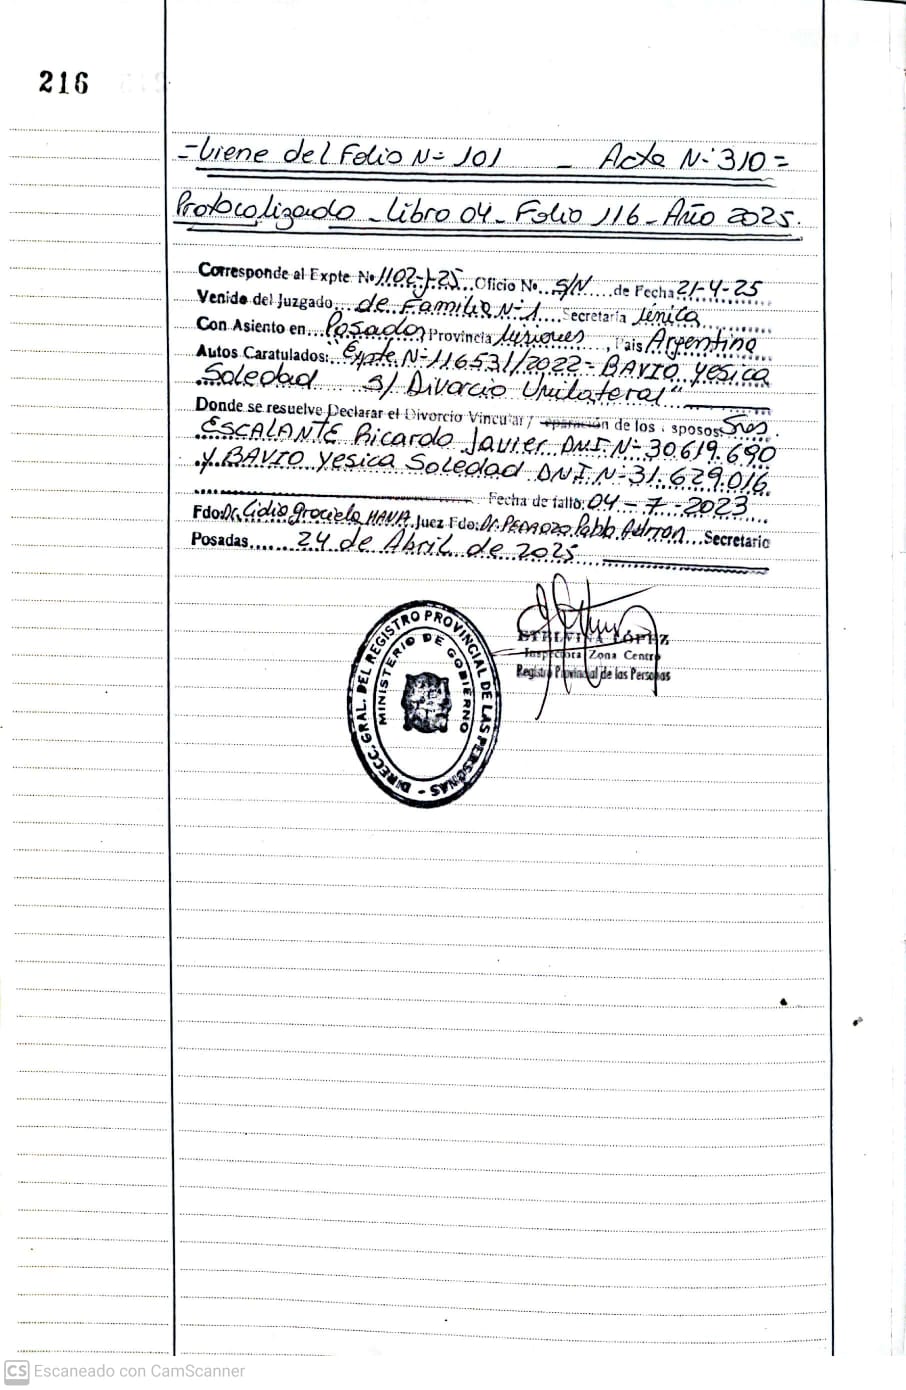 216
=Viene del Folio N= 101 - Acta N-310=
Protocolizado - Libro 04 - Folio 116 - Año 2025.
Corresponde al Expte Nº 1102-J-25 Oficio No. S/N de Fecha 21-4-25
Venido del Juzgado de Familia N-1 Secretaría única
Con Asiento en Posadas Provincia Misiones, País Argentina
Autos Caratulados: "Expte N-116531/2022- BAVIO Yesica
Soledad S/ Divorcio Unilateral"
Donde se resuelve Declarar el Divorcio Vincular / eparación de los sposos: Sres.
ESCALANTE Ricardo Javier DNI N-30.619.690
y BAVIO Yesica Soledad DNI N-31.629.016.
Fecha de fallo: 04-7-2023
Fdo: Dr. Lidia Graciela Juez Fdo: Dr. PEDROZO Pablo Secretario
Posadas, 24 de Abril de 2025
ETELVINA LÓPEZ
Inspectora Zona Centro
Registro Provincial de las Personas
DIRECC. GRAL. DEL REGISTRO PROVINCIAL DE LAS PERSONAS -
MINISTERIO DE GOBIERNO
CS Escaneado con CamScanner